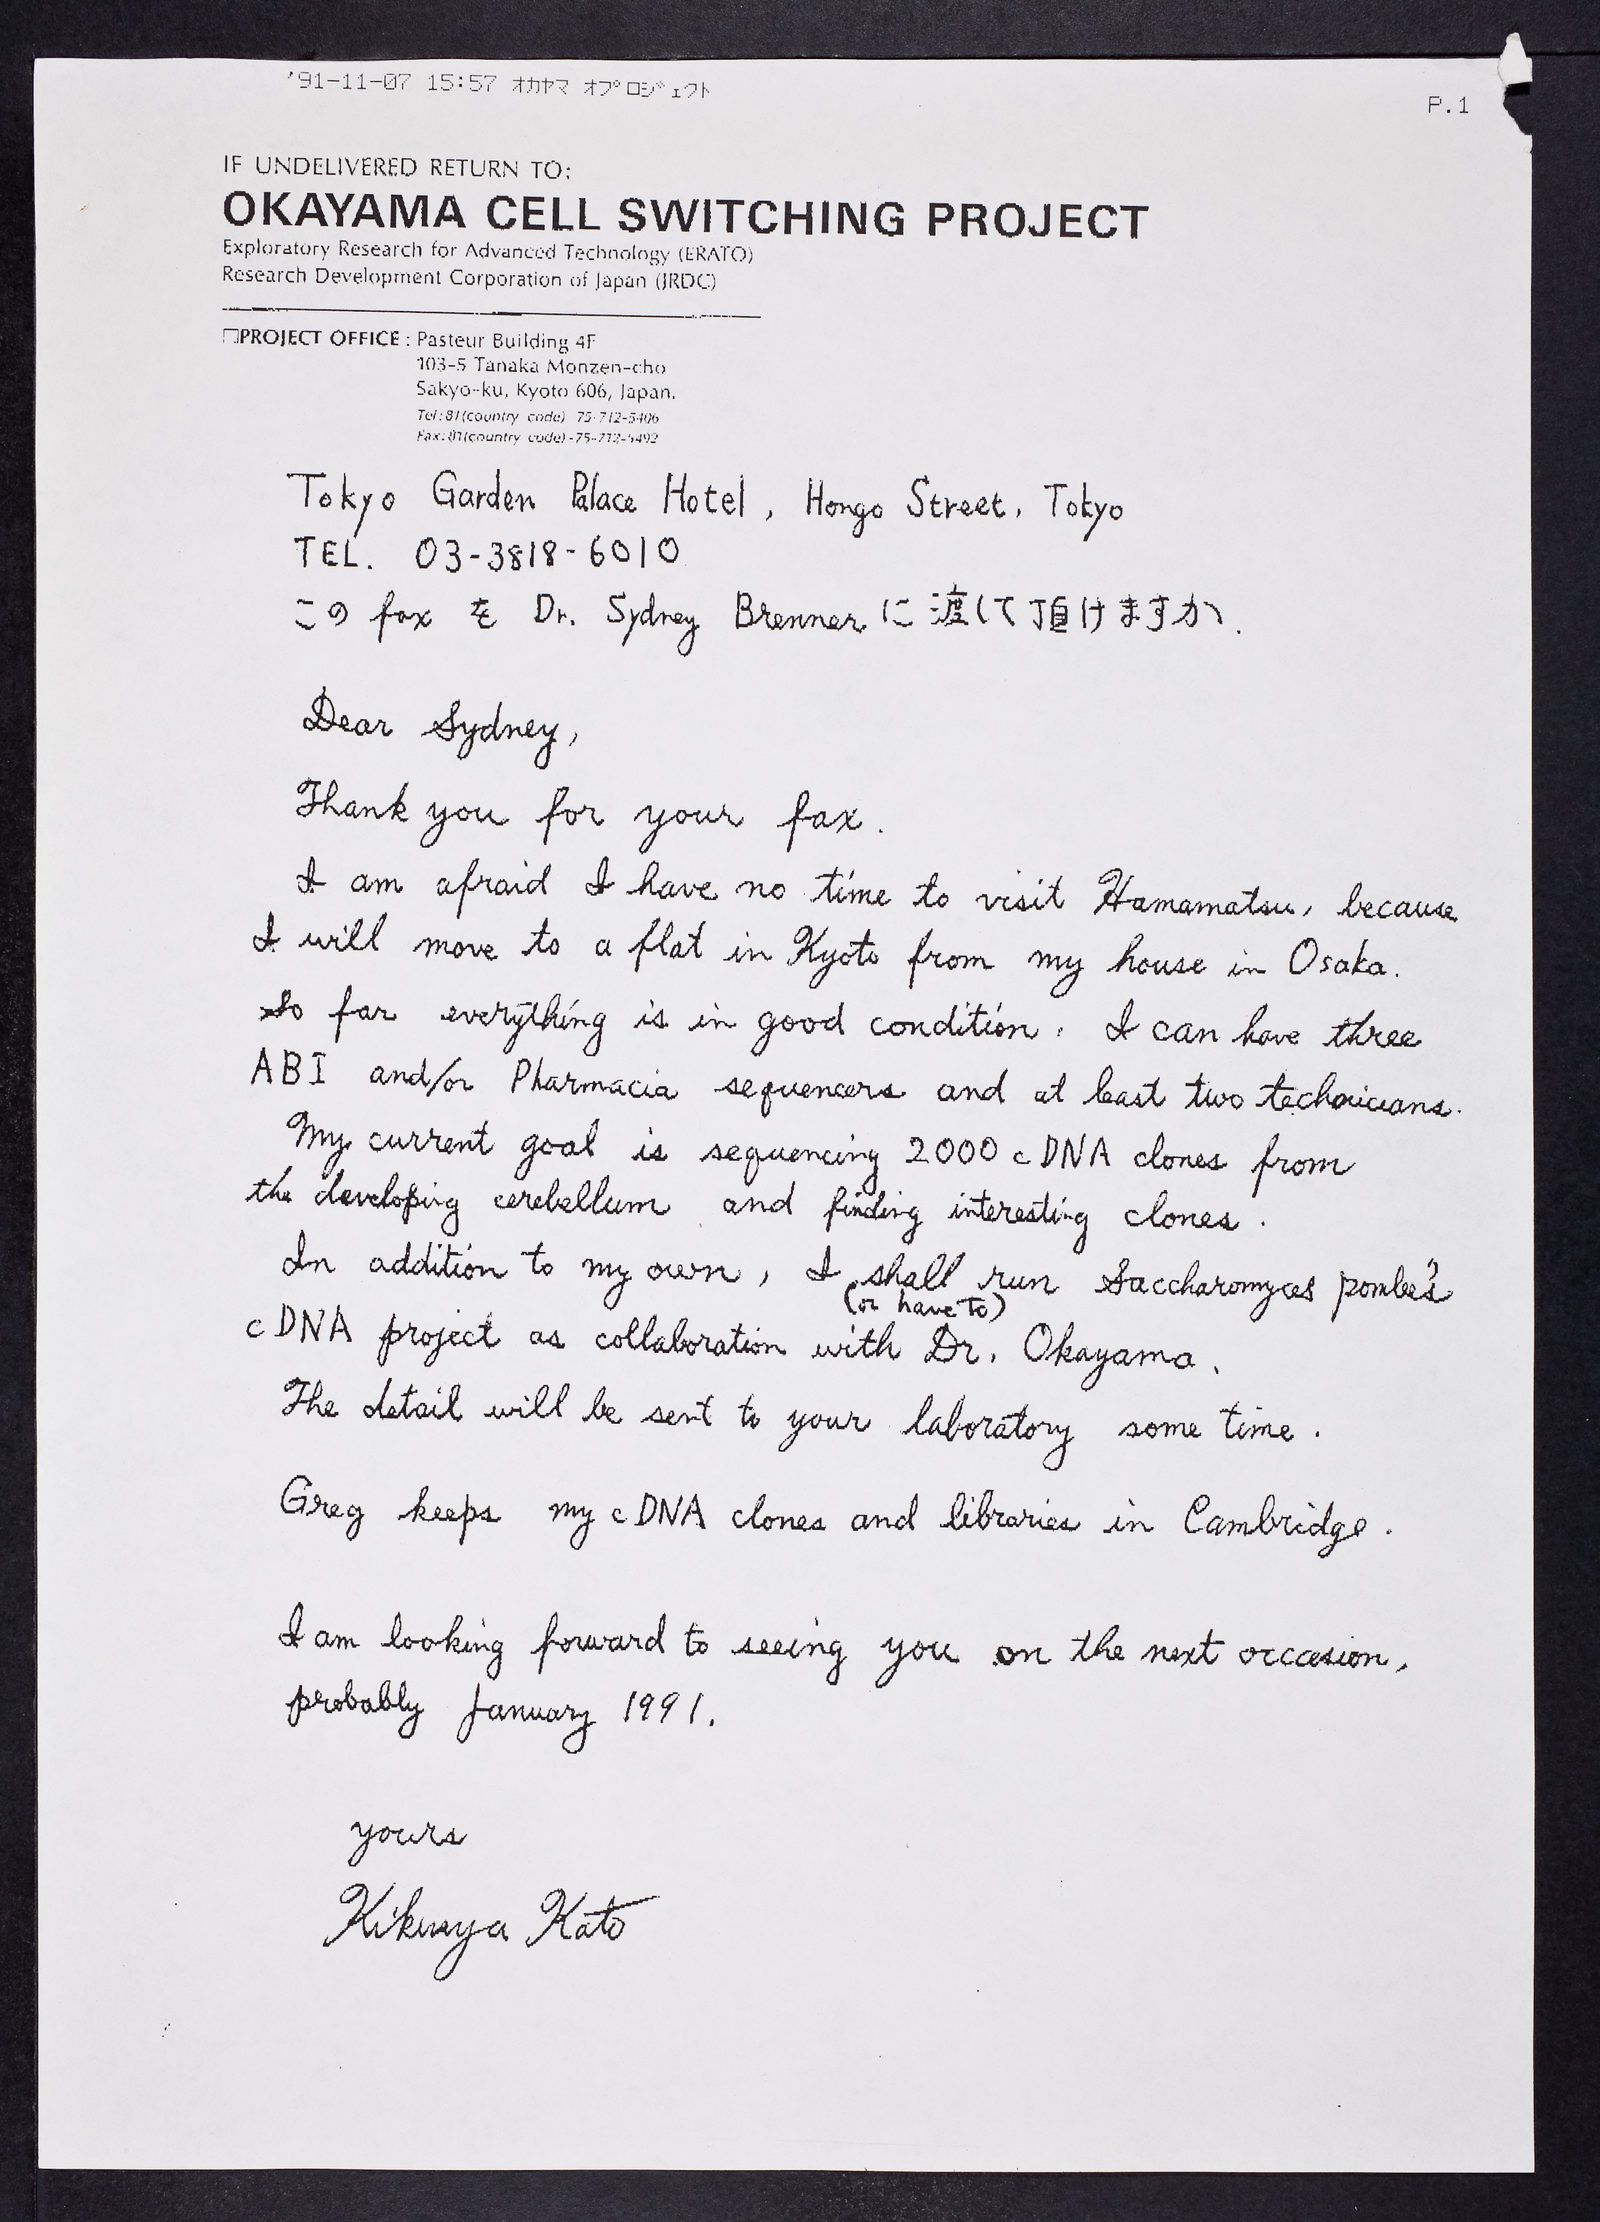 '91-11-07 15:57 オカヤマ オプロジェクト
P.1
IF UNDELIVERED RETURN TO:
OKAYAMA CELL SWITCHING PROJECT
Exploratory Research for Advanced Technology (ERATO)
Research Development Corporation of Japan (JRDC)
□PROJECT OFFICE : Pasteur Building 4F
103-5 Tanaka Monzen-cho
Sakyo-ku, Kyoto 606, Japan.
Tel:81(country code) 75-712-5406
Fax:81(country code)-75-712-5492
Tokyo Garden Palace Hotel, Hongo Street, Tokyo
TEL. 03-3818-6010
この fax を Dr. Sydney Brenner に渡して頂けますか.
Dear Sydney,
Thank you for your fax.
I am afraid I have no time to visit Hamamatsu, because
I will move to a flat in Kyoto from my house in Osaka.
So far everything is in good condition. I can have three
ABI and/or Pharmacia sequencers and at least two technicians.
My current goal is sequencing 2000 cDNA clones from
the developing cerebellum and finding interesting clones.
In addition to my own, I shall run Saccharomyces pombe's
(or have to)
cDNA project as collaboration with Dr. Okayama.
The detail will be sent to your laboratory some time.
Greg keeps my cDNA clones and libraries in Cambridge.
I am looking forward to seeing you on the next occasion,
probably January 1991.
yours
Kikuya Kato